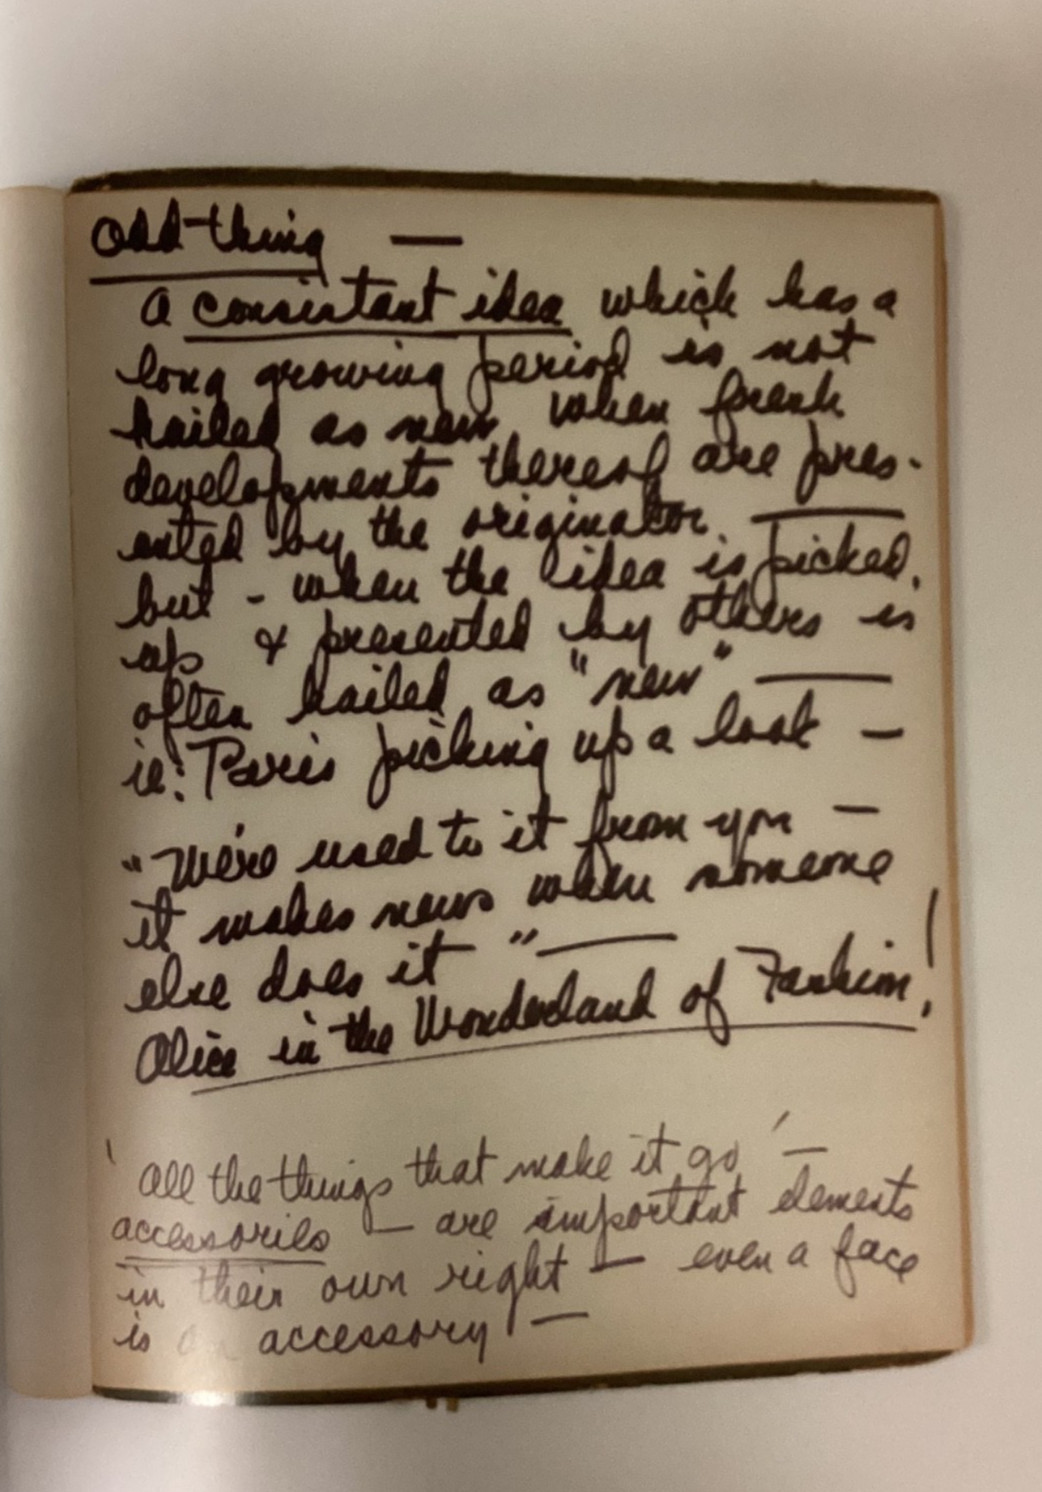 Odd-thing —
A consistant idea which has a
long growing period is not
hailed as new when fresh
developments thereof are pres-
ented by the originator —
but - when the idea is picked
up & presented by others is
often hailed as "new" —
ie: Paris picking up a look —
"We're used to it from you —
it makes news when someone
else does it" —
Alice in the Wonderland of Fashion!
'All the things that make it go' —
accessories — are important elements
in their own right — even a face
is an accessory —